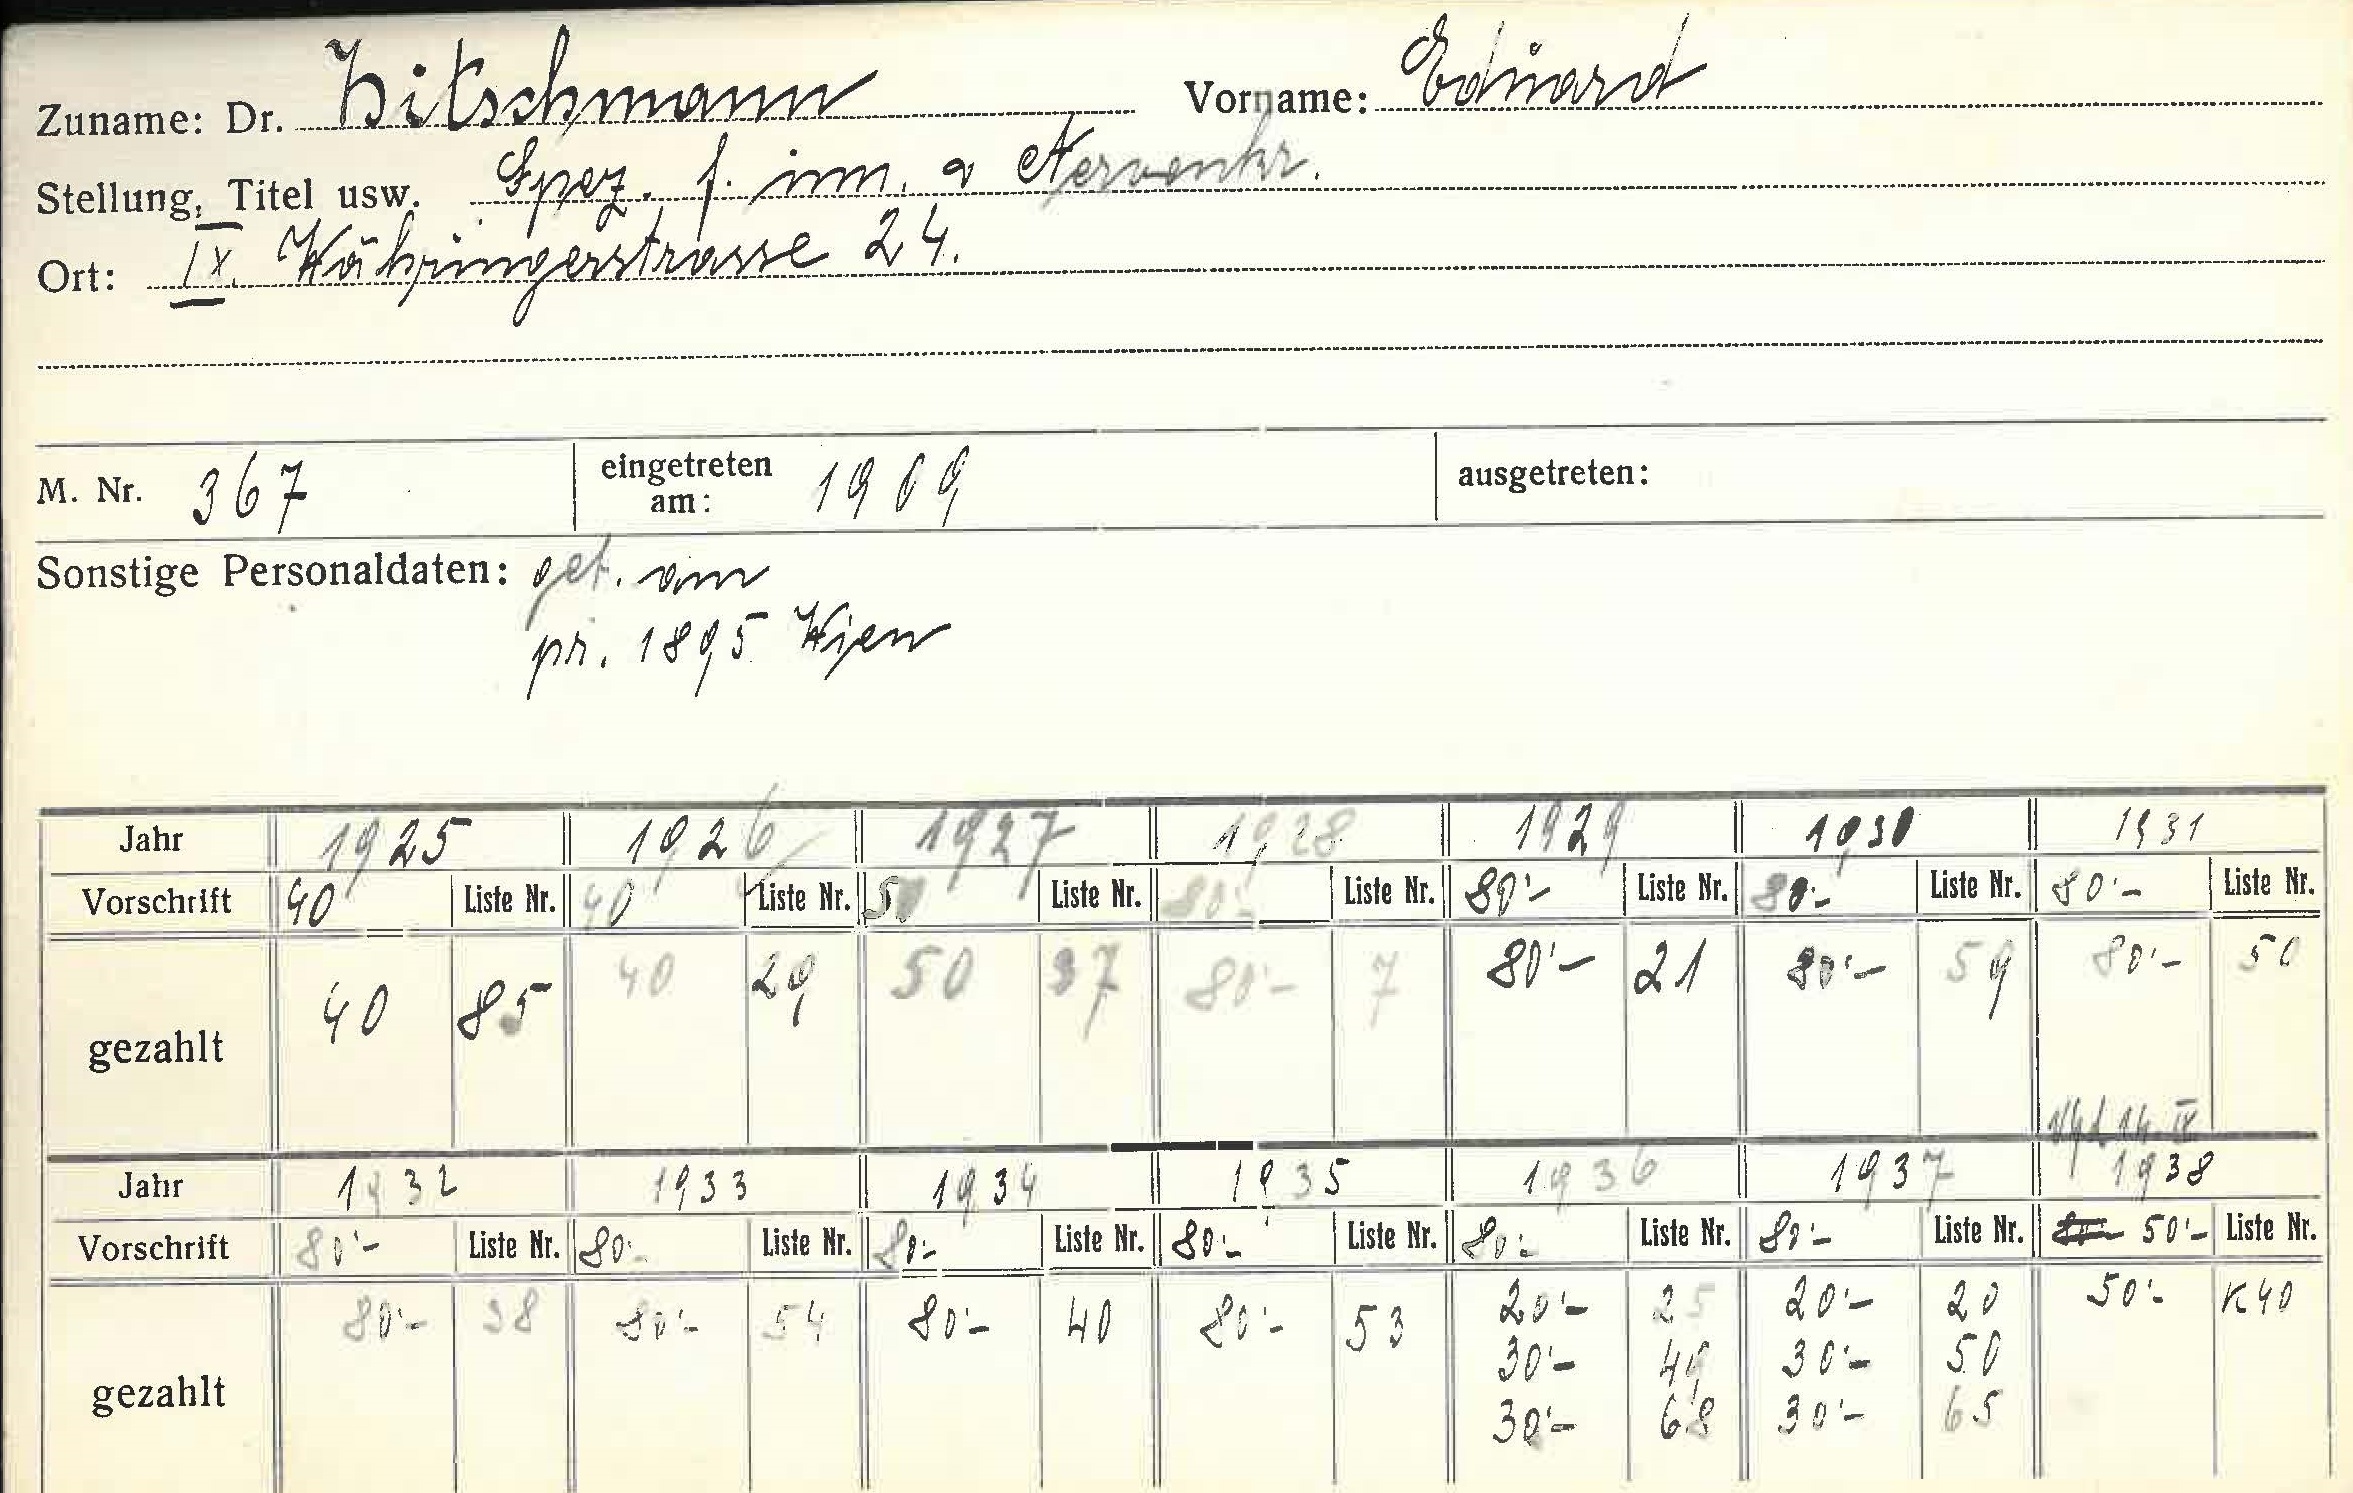 Zuname: Dr. Hitschmann Vorname: Eduard
Stellung, Titel usw. Spez. f. inn. u Nervenkr.
Ort: IX. Währingerstrasse 24.
M. Nr. 367 eingetreten am: 1909 ausgetreten:
Sonstige Personaldaten: geb. am
pr. 1895 Wien
Jahr 1925 1926 1927 1928 1929 1930 1931
Vorschrift 40 Liste Nr. 40 Liste Nr. 50 Liste Nr. 80'- Liste Nr. 80'- Liste Nr. 80'- Liste Nr. 80'- Liste Nr.
gezahlt 40 85 40 29 50 37 80'- 7 80'- 21 80'- 59 80'- 50
14. IX.
Jahr 1932 1933 1934 1935 1936 1937 1938
Vorschrift 80'- Liste Nr. 80'- Liste Nr. 80'- Liste Nr. 80'- Liste Nr. 80'- Liste Nr. 80'- Liste Nr. 80'- 50'- Liste Nr.
gezahlt 80'- 38 80'- 54 80'- 40 80'- 53 20'- 25 20'- 20 50'- K40
30'- 49 30'- 50
30'- 68 30'- 65